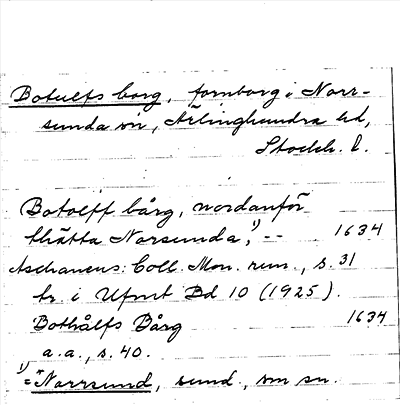 Botulfs borg, fornborg i Norr-
sunda sn, Ärlinghundra hd,
Stockh. l.
Botolff bårg, nordanför
thätta Norsunda,¹) -- 1634
Aschaneus: Coll. Mon. run., s. 31
tr. i Ufmt Bd 10 (1925).
Bothålfs Bårg 1634
a.a., s. 40.
¹) = *Norrsund, sund, sm sn.